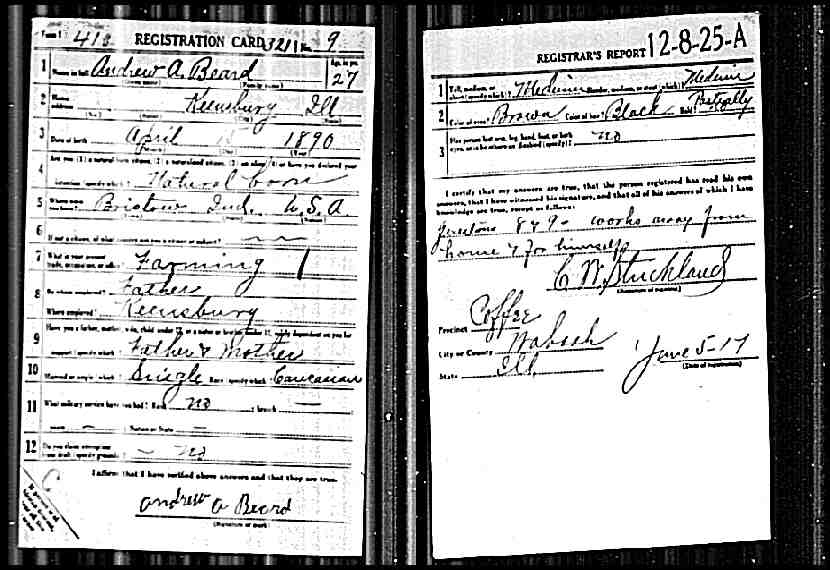 Form 1 418 REGISTRATION CARD 3211 No. 9
1 Name in full Andrew A. Beard Age, in yrs. 27
(Given name) (Family name)
2 Home address Keensburg Ill
(No.) (Street) (City) (State)
3 Date of birth April 1890
(Month) (Day) (Year)
4 Are you (1) a natural born citizen, (2) a naturalized citizen, (3) an alien, (4) or have you declared your
intention (specify which)? Natural born
5 Where were you born? Bristow Ind. U.S.A
6 If not a citizen, of what country are you a citizen or subject?
7 What is your present trade, occupation, or office? Farming
8 By whom employed? Father
Where employed? Keensburg
9 Have you a father, mother, wife, child under 12, or a sister or brother under 12, solely dependent on you for
support (specify which)? Father & Mother
10 Married or single (which)? Single Race (specify which)? Caucasian
11 What military service have you had? Rank no ; branch —
years — ; Nation or State —
12 Do you claim exemption from draft (specify grounds)? — no
I affirm that I have verified above answers and that they are true.
Andrew A Beard
(Signature or mark)
REGISTRAR'S REPORT 12-8-25-A
1 Tall, medium, or short (specify which)? Medium Slender, medium, or stout (which)? Medium
2 Color of eyes? Brown Color of hair? Black Bald? Partially
3 Has person lost arm, leg, hand, foot, or both eyes, or is he otherwise disabled (specify)? no
I certify that my answers are true, that the person registered has read his own
answers, that I have witnessed his signature, and that all of his answers of which I have
knowledge are true, except as follows:
Questions 8 & 9 - works away from
home & for himself
C W Strickland
(Signature of registrar)
Precinct Coffee
City or County Wabash
State Ill. June 5-17
(Date of registration)